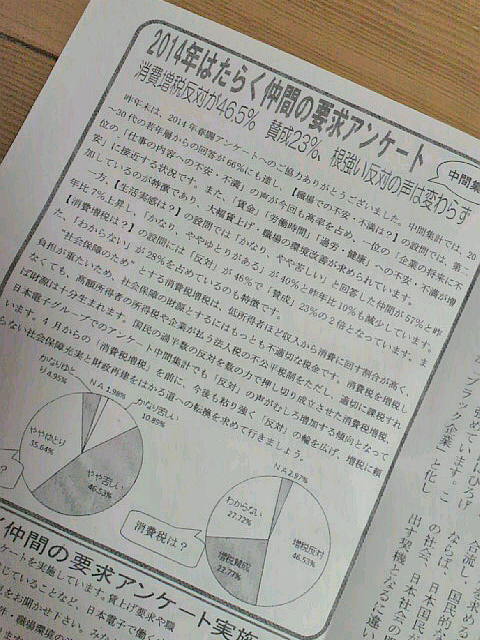 2014年はたらく仲間の要求アンケート
消費増税反対が46.5% 賛成23%、根強い反対の声は変わらず
中間集
昨年末は、2014年春闘アンケートへのご協力ありがとうございました。中間集計では、20
～30代の若年層からの回答が66%にも達し、【職場での不安・不満は？】の設問では、第一
位の、「仕事の内容への不安・不満」の声が今回も高率を占め、二位の「企業の将来に不
安」に接近する状況です。また、「賃金」「労働時間」「過労・健康」への不安・不満が増
加しているのが特徴であり、大幅賃上げ、職場の環境改善が求められています。
一方、【生活実感は？】の設問では「かなり、やや苦しい」と回答した仲間が57%と昨
年比7%上昇し、「かなり、ややゆとりがある」が40%と昨年比10%も減少しています。
【消費増税は？】の設問には「反対」が46%で「賛成」23%の2倍となっています。ま
た、「わからない」が25%を占めているのも特徴です。
"社会保障のため"とする消費税増税は、低所得者ほど収入から消費に回す割合が高く、
負担が重いため、社会保障の財源とするにはもっとも不適切な税金です。消費税を増税し
なくても、高額所得者の所得税や企業が払う法人税の不公平税制をただし、適切に課税すれ
ば財源は十分生まれます。国民の過半数の反対を数の力で押し切り成立させた消費税増税、
日本電子グループでのアンケート中間集計でも「反対」の声がむしろ増加する傾向となって
います。4月からの「消費税増税」を前に、今後も粘り強く「反対」の輪を広げ、増税に頼
らない社会保障充実と財政再建をはかる道への転換を求めて行きましょう。
かなりゆと
り4.95%
N A 1.98%
かなり苦しい
10.89%
ややゆとり
35.64%
やや苦しい
46.53%
？
消費税は？
N A 2.97%
わからない
27.72%
増税賛成
22.77%
増税反対
46.53%
仲間の要求アンケート実施
ケートを実施しています。賃上げ要求や職
じていることなど、日本電子で働く
見をお聞かせ下さい。みな
職場環境の
ひろげ
強めています。こ
ブラック企業」と化し
合流し、
を求める
ならば、国民的な
の社会、日本国民
出す契機となるに違い
日本社会の